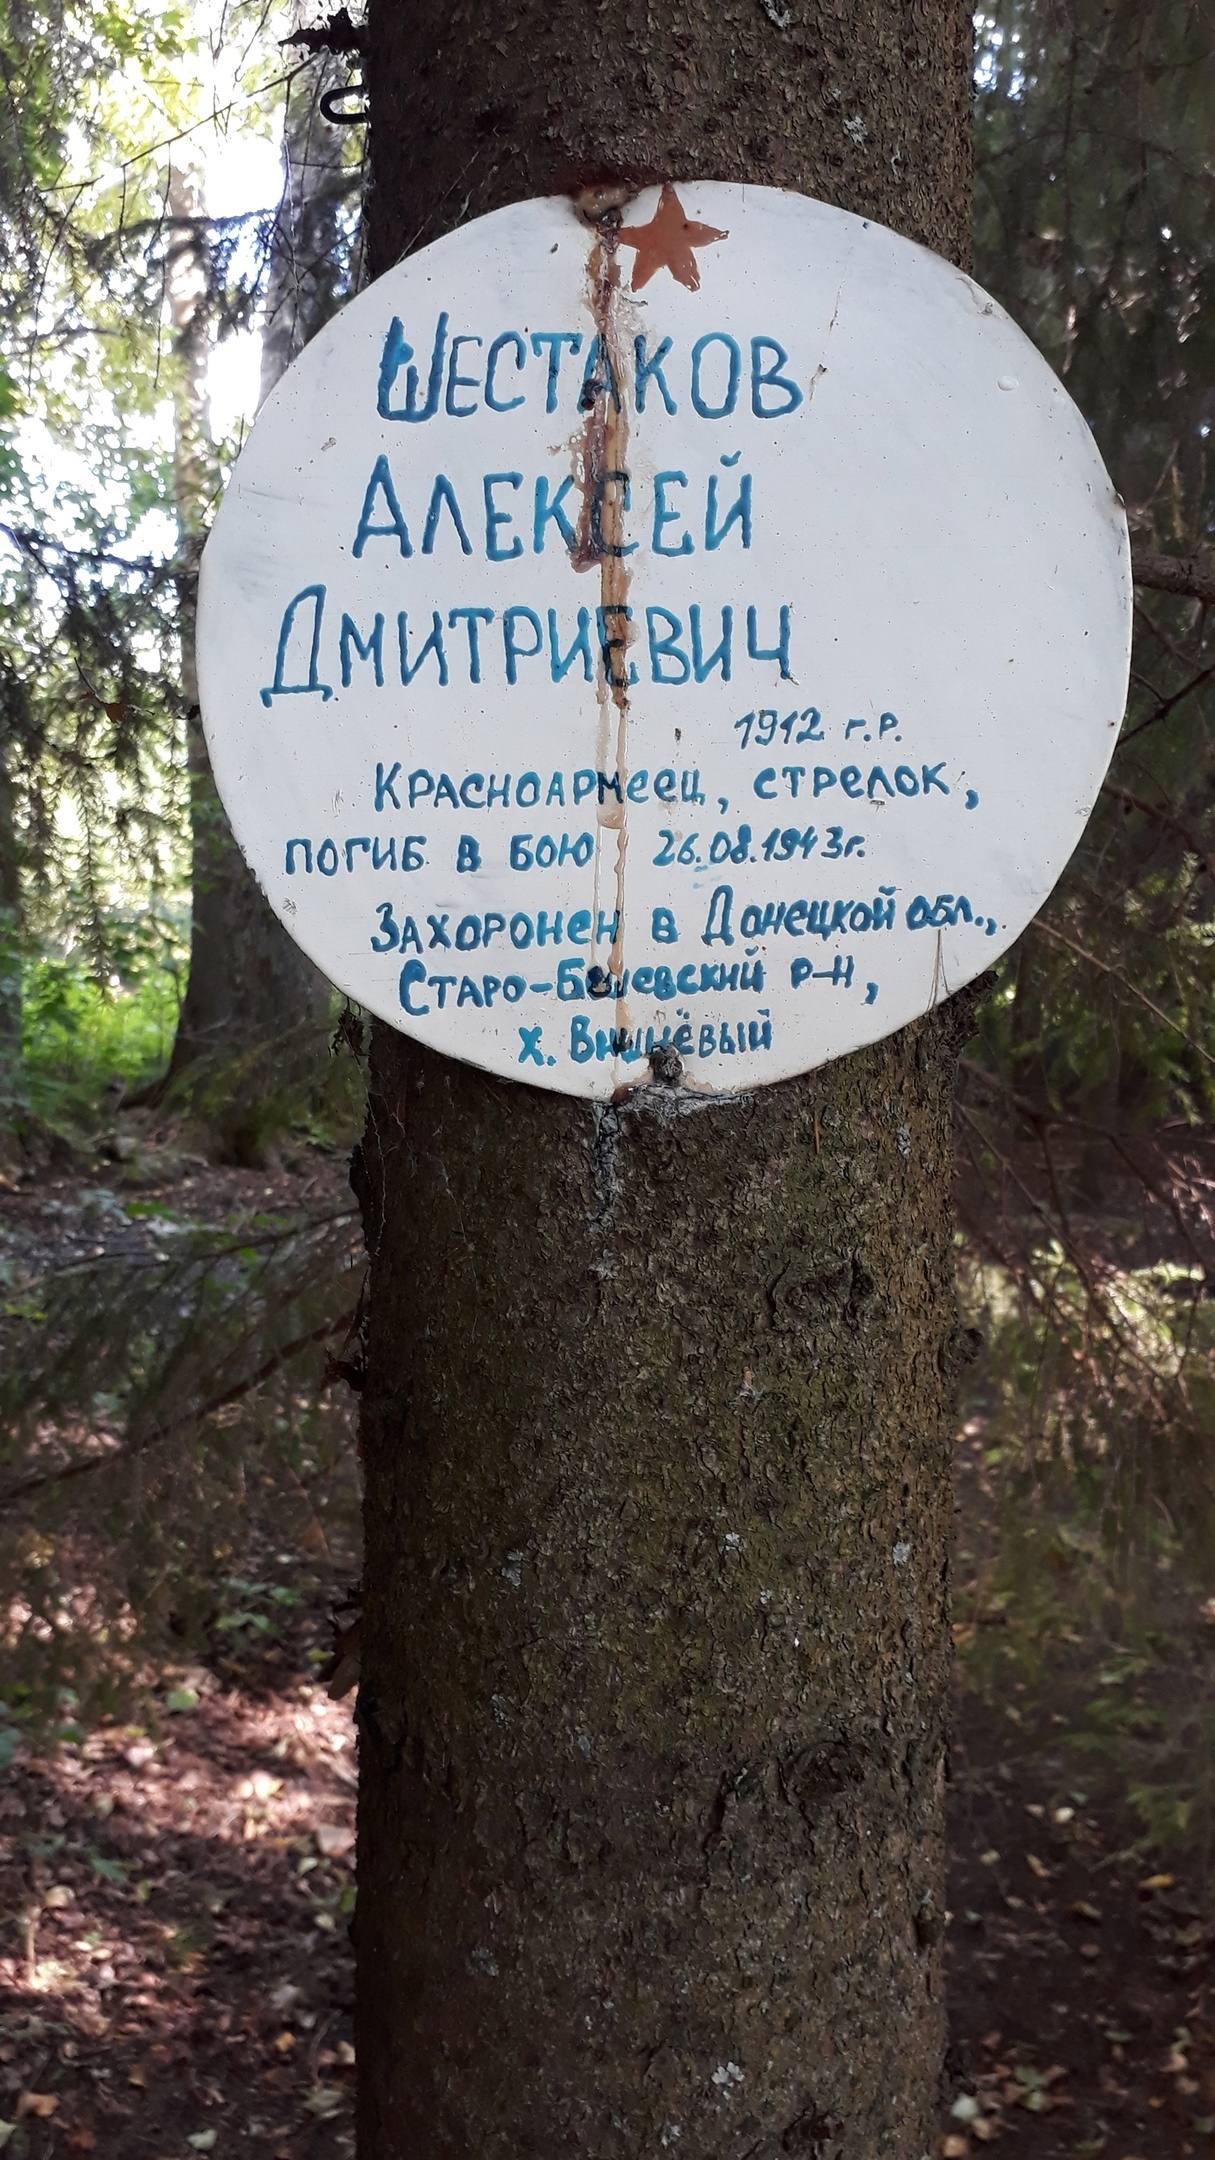 Шестаков
Алексей
Дмитриевич
1912 г.р.
Красноармеец, стрелок,
погиб в бою 26.08.1943г.
Захоронен в Донецкой обл.,
Старо-Бешевский р-н,
х. Вишнёвый